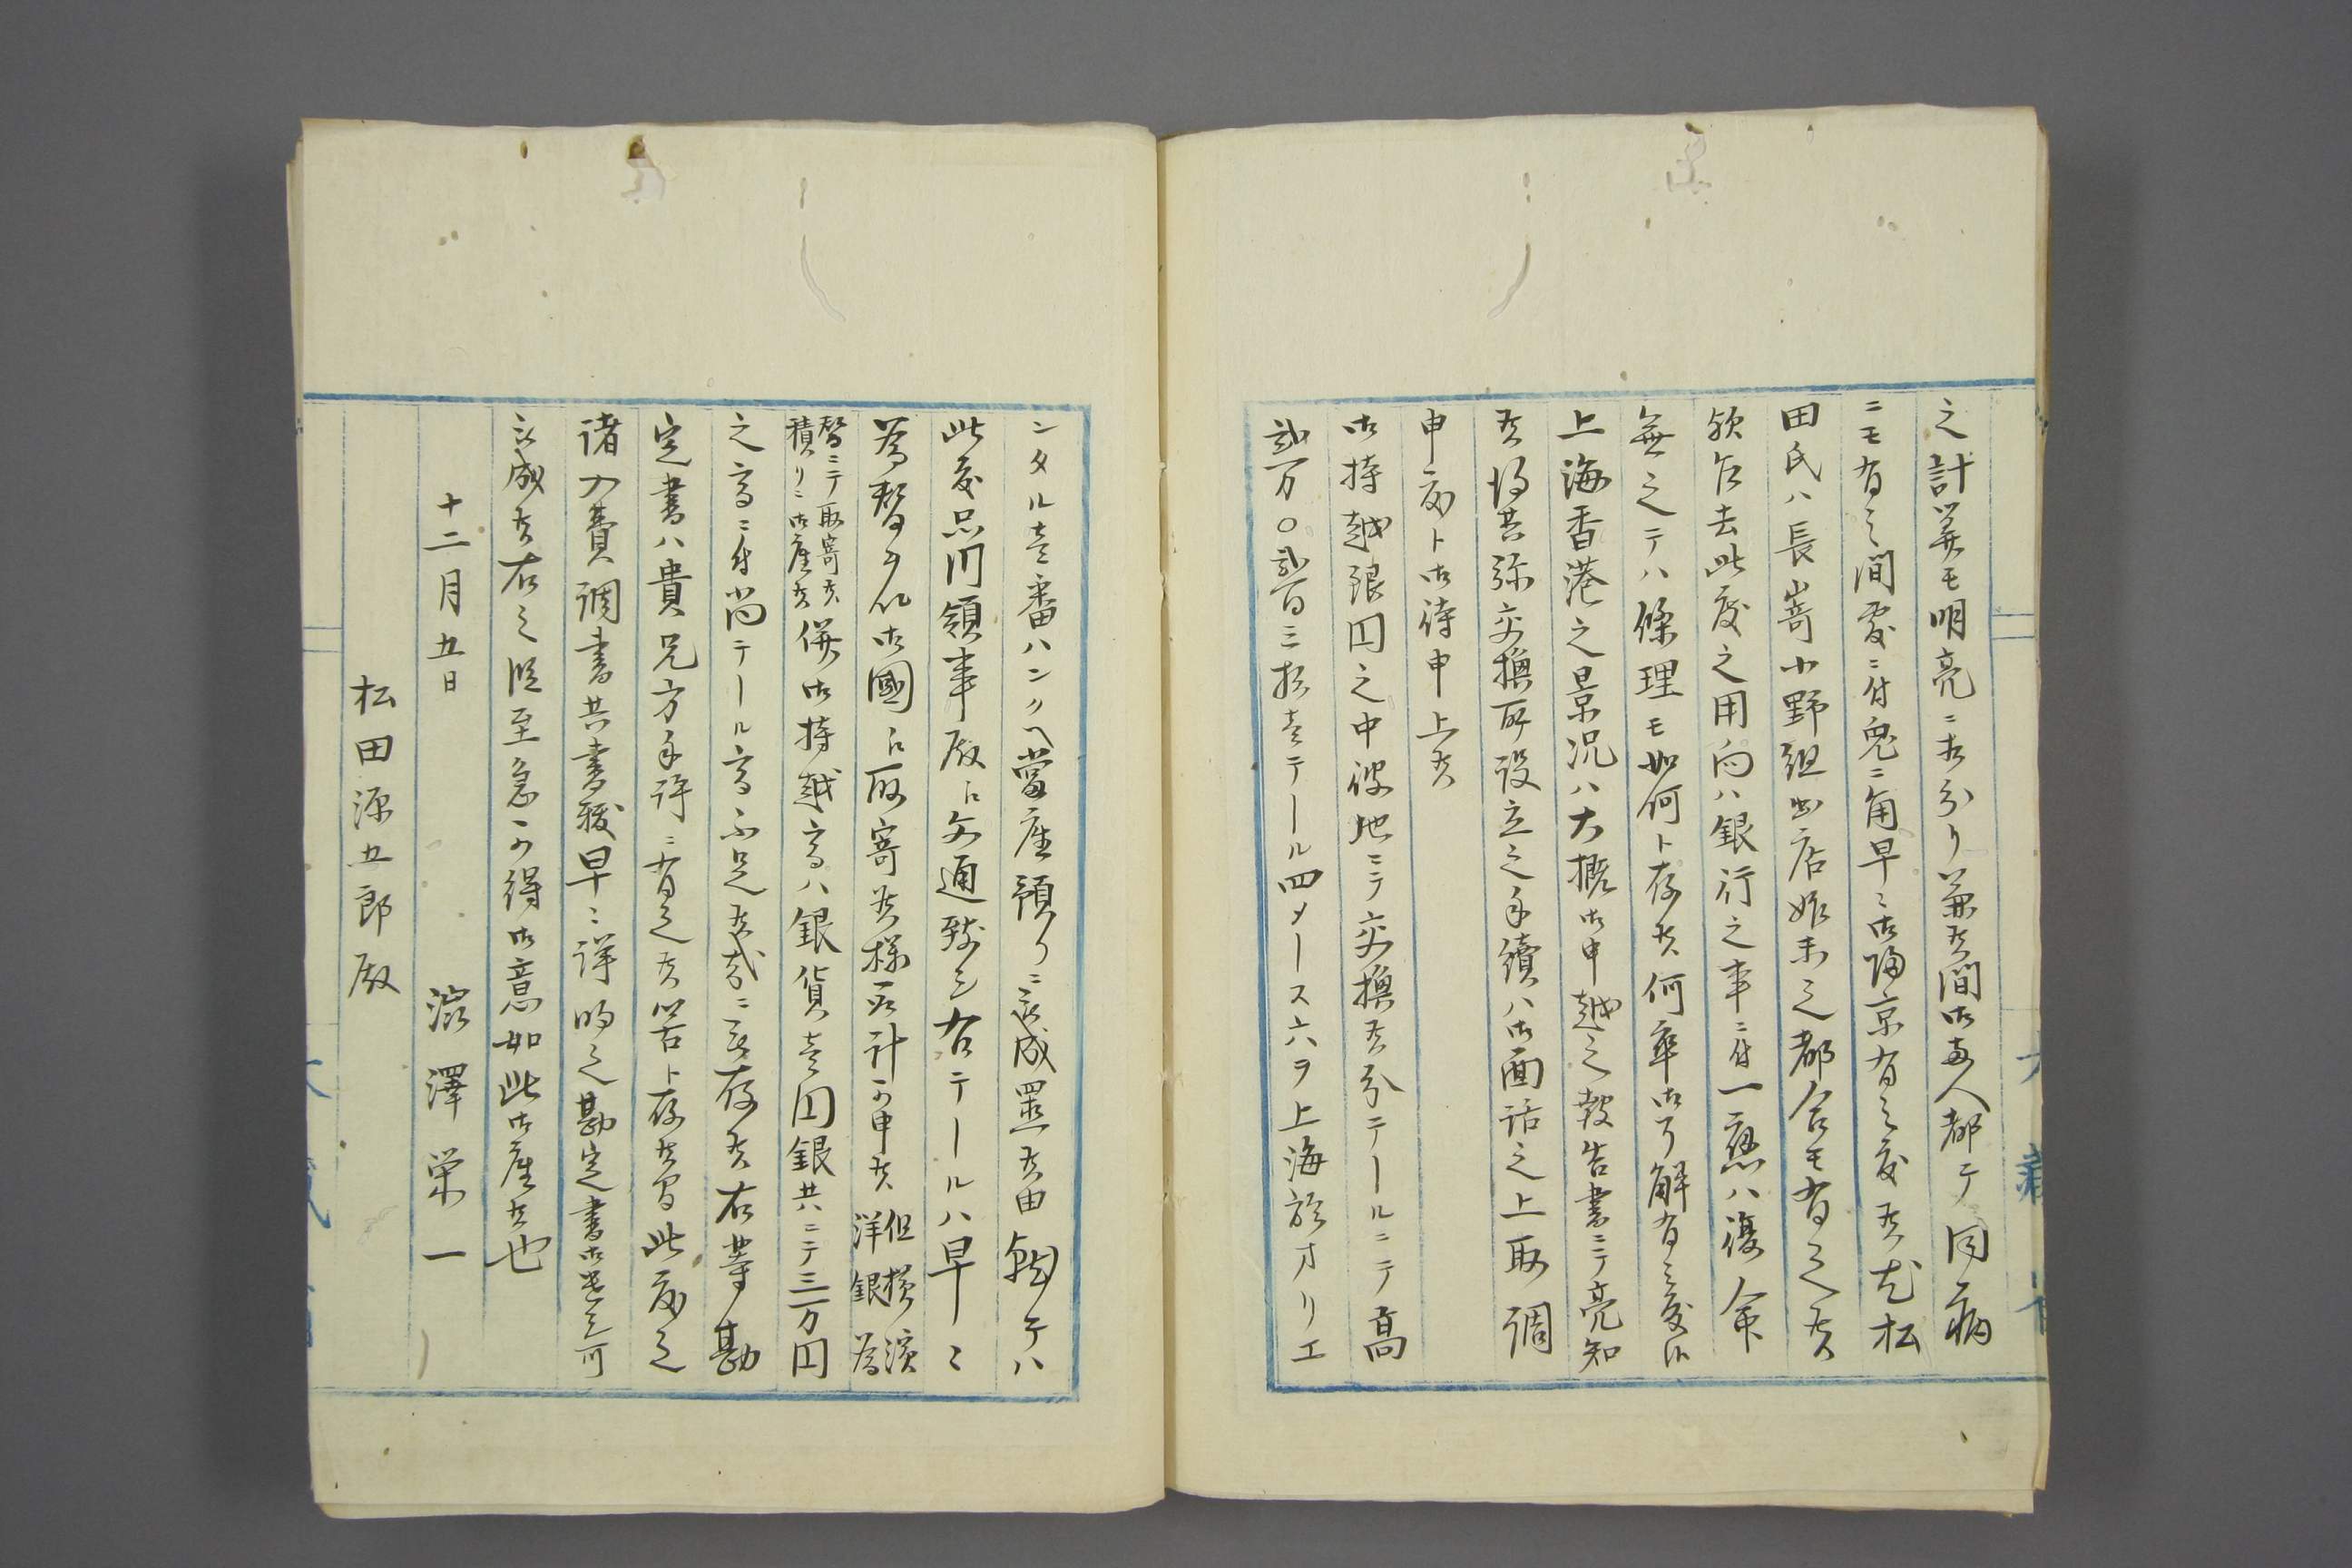 之計算モ明亮ニ相分リ兼候間御両人都テ同病
ニモ有之間敷ニ付兎ニ角早々御帰京有之度候尤松
田氏ハ長崎小野組出店始末之都合モ有之候
欤乍去此度之用向ハ銀行之事ニ付一応ハ復命
無之テハ條理モ如何ト存候何卒御了解有之度候
上海香港之景況ハ大概御申越之報告書ニテ亮知
候得共弥交換所設立之手續ハ御面話之上取調
申度ト御待申上候
御持越銀円之中彼地ニテ交換候分テールニテ高
弐万〇弐百三拾壱テール四メース六ヲ上海於オリエ
ンタル壱番ハンクヘ當座預リニ被成置候由就テハ
此度品川領事殿ヘ文通致シ右テールハ早々
為替ヲ以御國ヘ取寄候様取計可申候 但横濱
洋銀為
替ニテ取寄候
積リニ御座候 併御持越高ハ銀貨壱円銀共ニテ三万円
之高ニ付尚テール高不足候哉ニ被存候右等勘
定書ハ貴兄方手許ニ有之候筈ト存候間此度之
諸入費調書共書載早々詳明之勘定書御廻シ可
被成候右之段至急可得御意如此御座候也
十二月五日
澁澤栄一
松田源五郎殿